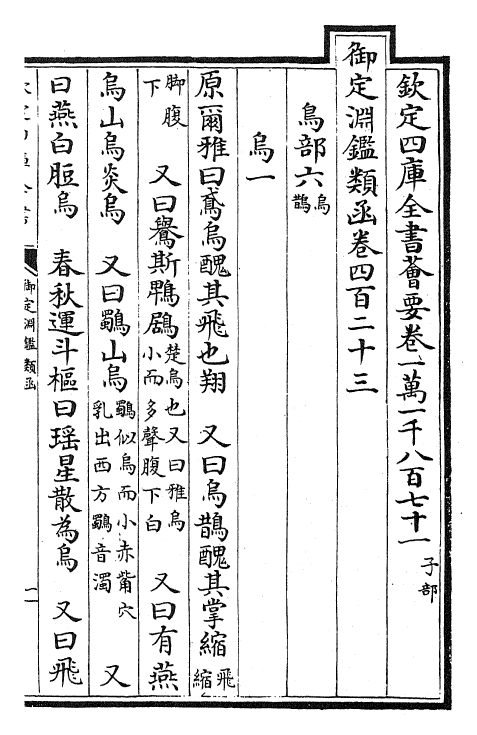 欽定四庫全書薈要卷一萬一千八百七十一 子部
御定淵鑑類函卷四百二十三
鳥部六 烏 鵲
烏一
原爾雅曰鳶烏醜其飛也翔 又曰烏鵲醜其掌縮 飛縮
脚腹下 又曰鸒斯鵯鶋 楚烏也又曰雅烏小而多聲腹下白 又曰有燕
烏山烏炎烏 又曰鸀山烏 鸀似烏而小赤觜穴乳出西方鸀音濁 又
曰燕白脰烏 春秋運斗樞曰瑶星散為烏 又曰飛
御定淵鑑類函
一